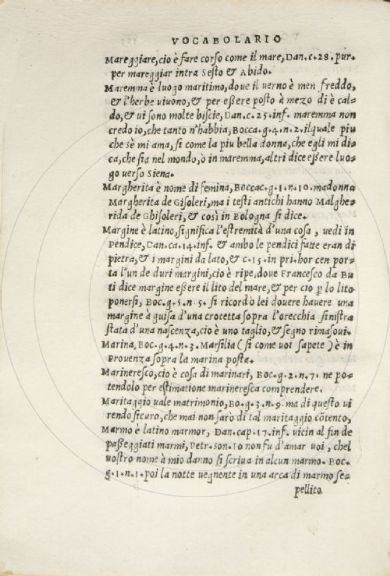 VOCABOLARIO
Mareggiare, cio è fare corso come il mare, Dan. c. 28. pur.
per mareggiar intra Sesto & Abido.
Maremma è luogo maritimo, doue il uerno è men freddo,
& l'herbe uiuono, & per essere posto à mezo dì è cal-
do, & ui sono molte biscie, Dan. c. 25. inf. maremma non
cred'io, che tanto n'habbia, Bocca. g. 4. n. 2. il quale piu
che sè mi ama, sì come la piu bella donna, che egli mi di-
ca, che sia nel mondo, ò in maremma, altri dice essere luo-
go uerso Siena.
Margherita è nome di femina, Boccac. g. 1. n. 10. madonna
Margherita de Gisoleri, ma i testi antichi hanno Malghe-
rida de Ghisoleri, & così in Bologna si dice.
Margine è latino, significa l'estremità d'una cosa, uedi in
Pendice, Dan. ca. 14. inf. & ambo le pendici fatte eran di
pietra, & i margini da lato, & c. 15. in pri. hor cen por-
ta l'un de duri margini, cio è ripe, doue Francesco da Bu
ti dice margine essere il lito del mare, & per cio p lo lito
ponersi, Boc. g. 5. n. 5. si ricordò lei douere hauere una
margine à guisa d'una crocetta sopra l'orecchia sinistra
stata d'una nascenza, cio è uno taglio, & segno rimasoui.
Marina, Boc. g. 4. n. 3. Marsilia (sì come uoi sapete) è in
Prouenza sopra la marina posta.
Marineresco, cio è cosa di marinari, Boc. g. 2. n. 7. ne po-
tendolo per estimatione marineresca comprendere.
Maritaggio uale matrimonio, Boc. g. 3. n. 9. ma di questo ui
rendo sicuro, che mai non sarò di tal maritaggio cōtento,
Marmo è latino marmor, Dan. cap. 17. inf. uicin al fin de
passeggiati marmi, Petr. son. 10 non fu d'amar uoi, chel
uostro nome à mio danno si scriua in alcun marmo. Boc.
g. 1. n. 1. poi la notte uegnente in una arca di marmo se-
pellito